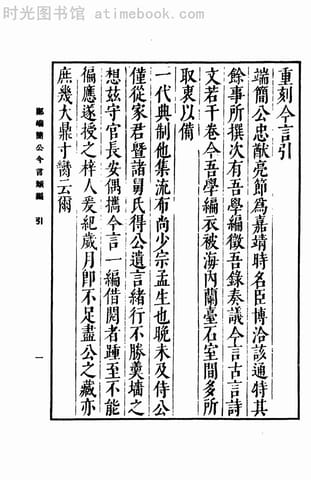 时光图书馆 - atimebook.com
重刻今言引
端簡公忠猷亮節為嘉靖時名臣博洽該通特其
餘事所撰次有吾學編徵吾錄奏議今言古言詩
文若干卷今吾學編衣被海內蘭臺石室間多所
取衷以備
一代典制他集流布尚少宗孟生也晚未及侍公
僅從家君暨諸舅氏得公遺言緒行不勝羹墻之
想茲守官長安偶攜今言一編借閱者踵至不能
偏應遂授之梓人爰紀歲月卽不足盡公之藏亦
庶幾大鼎寸臠云爾
鄭端簡公今言類編 引
一